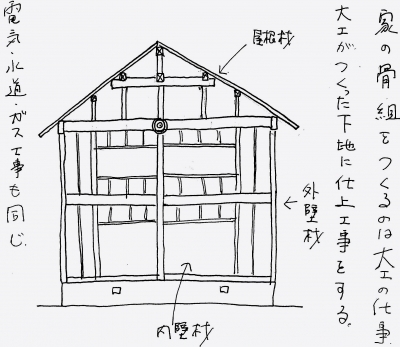 家の骨組をつくるのは大工の仕事
大工がつくった下地に仕上工事をする。
屋根材
外壁材
内壁材
電気・水道・ガス工事も同じ